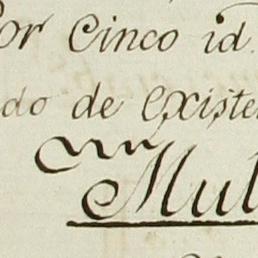 or Cinco id.
do de Existen
Mul